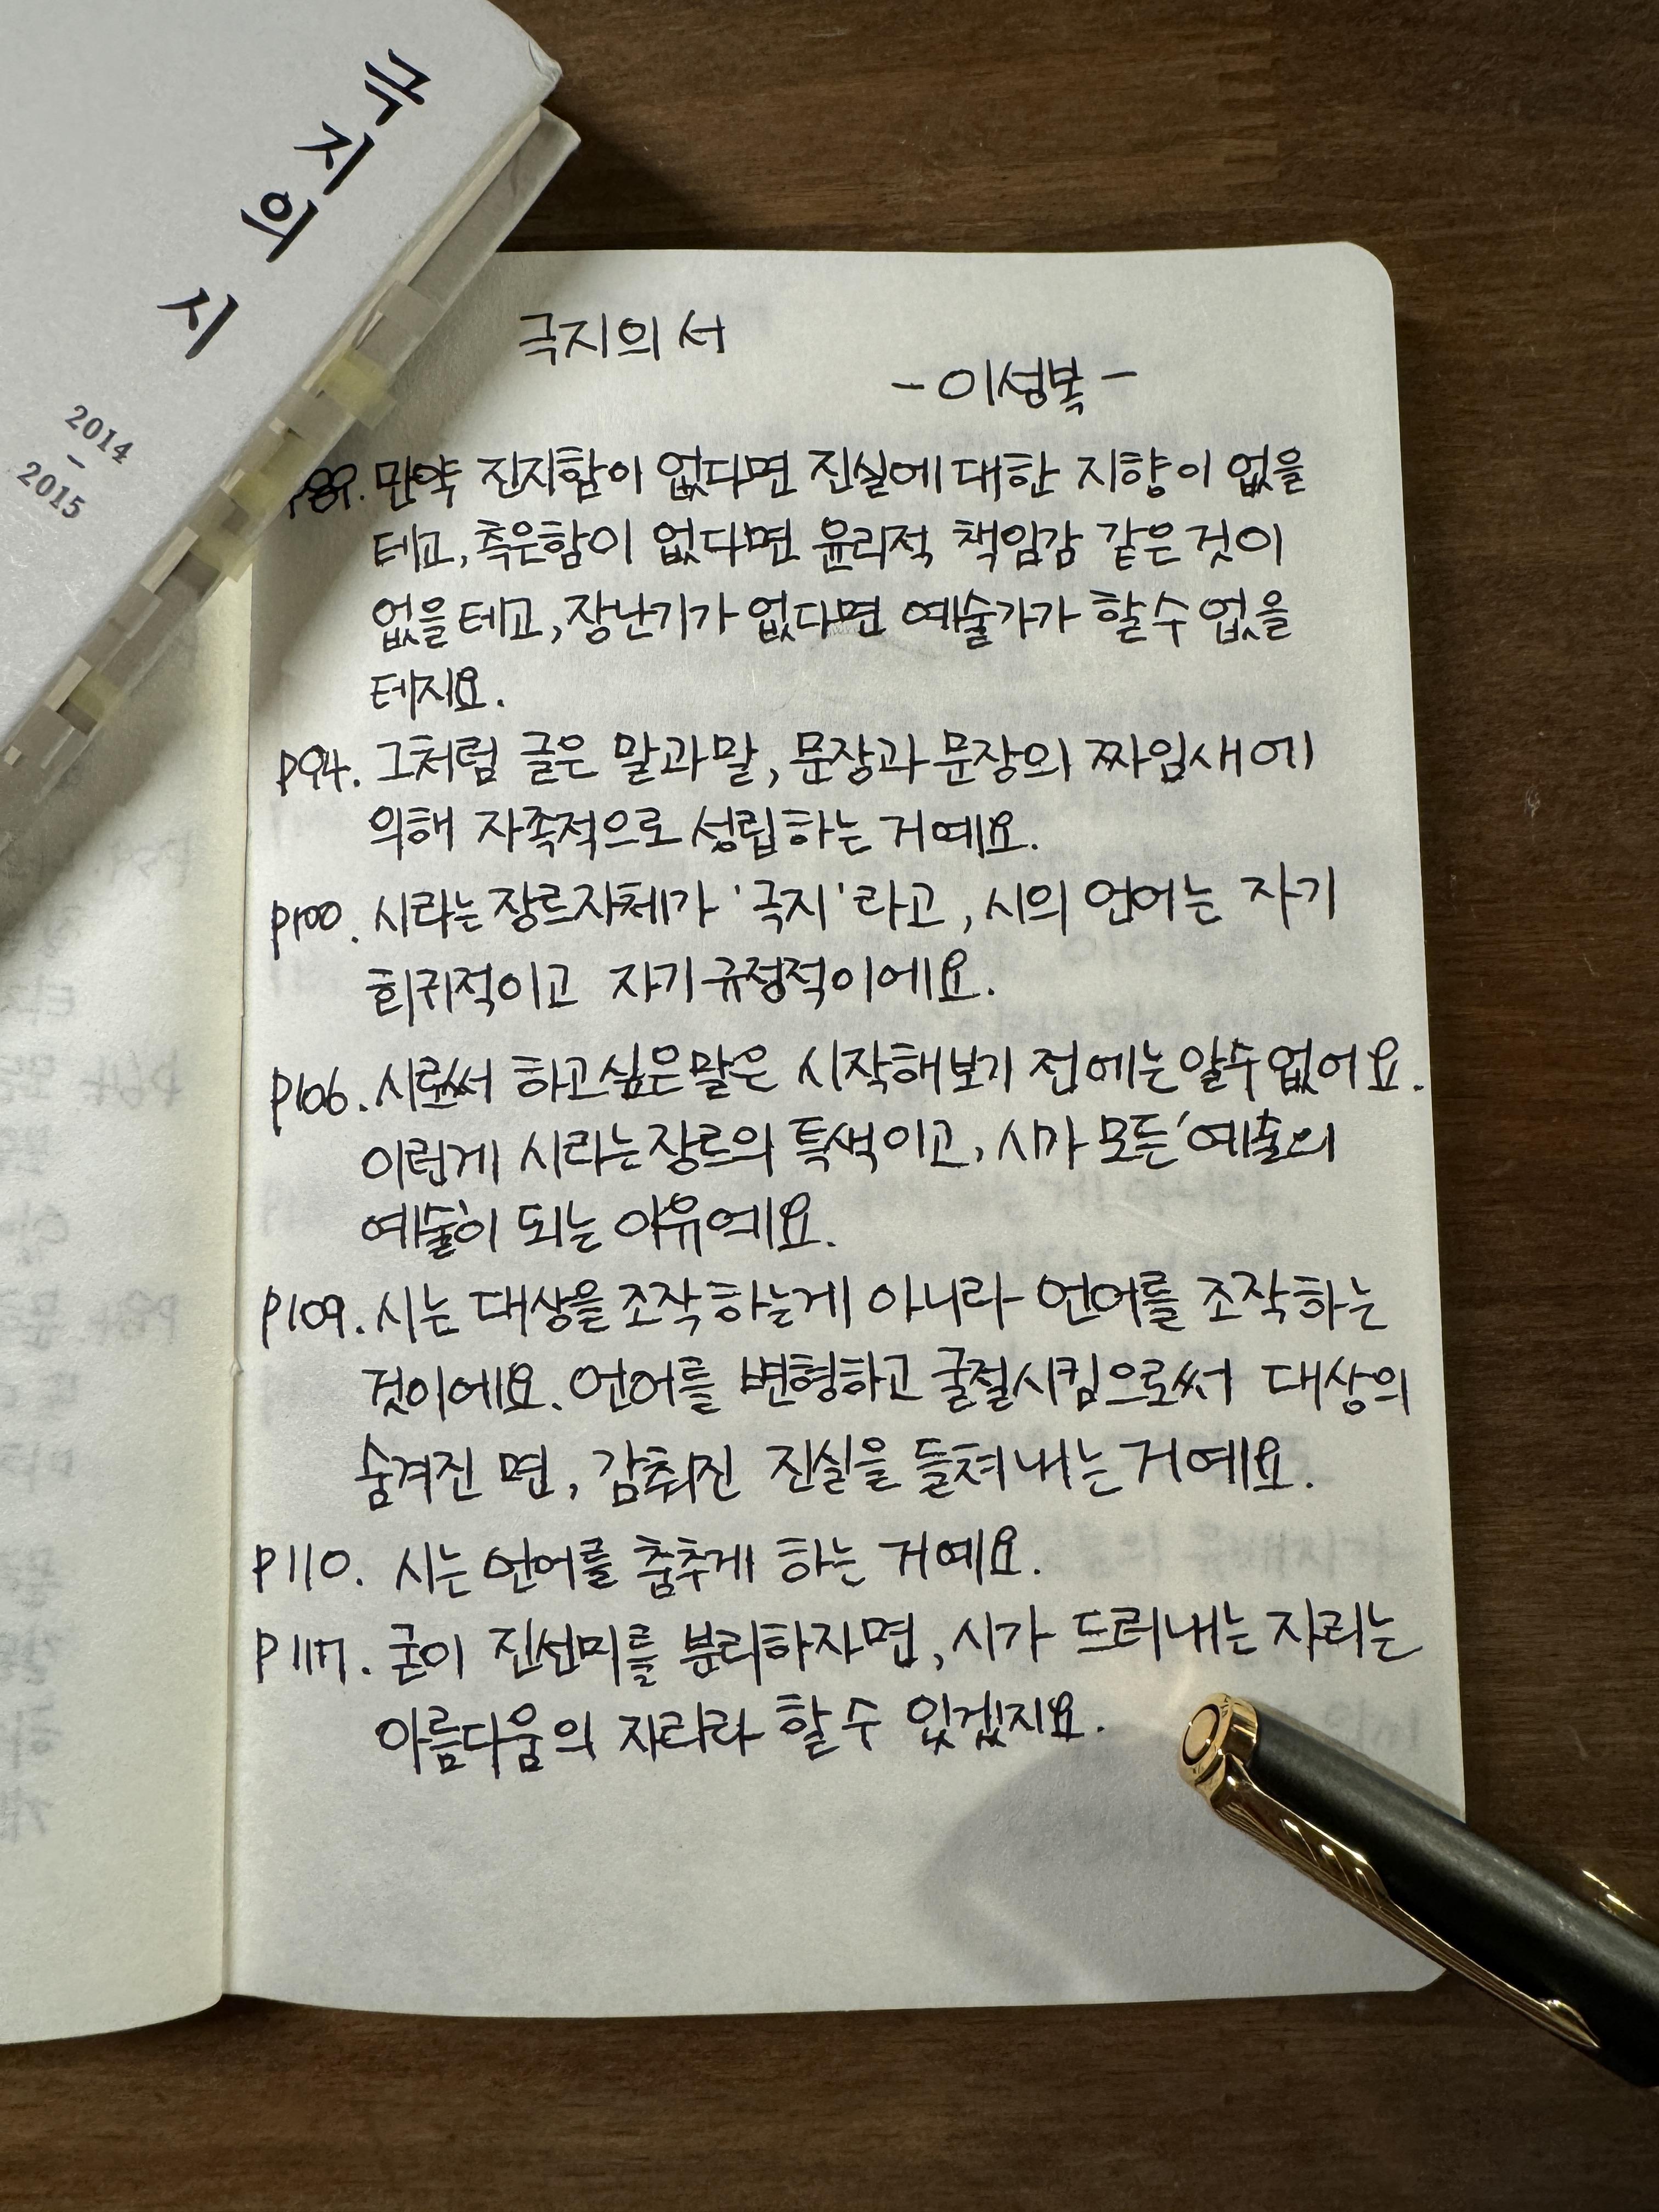 극지의
시
2014
–
2015
극지의 서
- 이성복 -
P89. 만약 진지함이 없다면 진실에 대한 지향이 없을
테고, 측은함이 없다면 윤리적 책임감 같은 것이
없을 테고, 장난기가 없다면 예술가가 할 수 없을
테지요.
P94. 그처럼 글은 말과 말, 문장과 문장의 짜임새에
의해 자족적으로 성립하는 거예요.
P100. 시라는 장르자체가 '극지'라고, 시의 언어는 자기
회귀적이고 자기 규정적이에요.
P106. 시로써 하고 싶은 말은 시작해보기 전에는 알 수 없어요.
이런게 시라는 장르의 특색이고, 시가 모든 '예술의
예술'이 되는 이유예요.
P109. 시는 대상을 조작하는게 아니라 언어를 조작하는
것이에요. 언어를 변형하고 굴절시킴으로써 대상의
숨겨진 면, 감춰진 진실을 들쳐내는 거예요.
P110. 시는 언어를 춤추게 하는 거예요.
P117. 굳이 진선미를 분리하자면, 시가 드러내는 자리는
아름다움의 자리라 할 수 있겠지요.